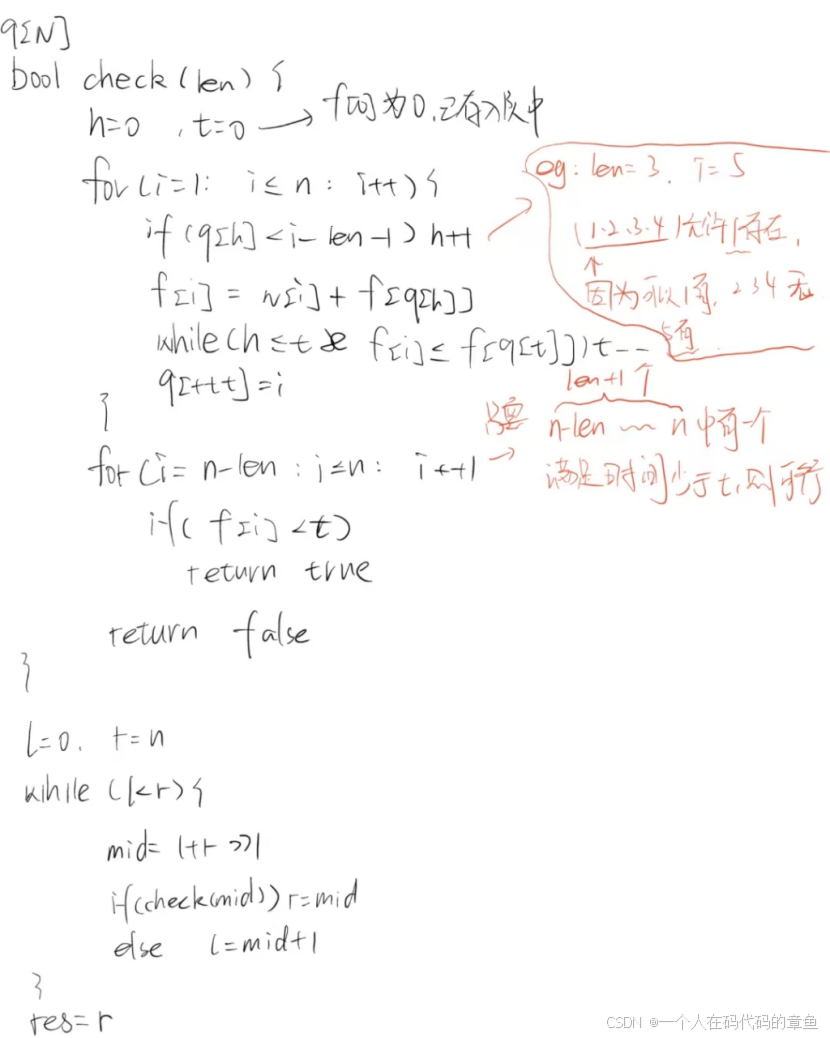 q[N]
bool check(len) {
h=0 , t=0 → f[0]为0,已存入队中
for(i=1: i≤n: i++){
if(q[h]<i-len-1) h++
f[i] = w[i] + f[q[h]]
while(h≤t && f[i]≤f[q[t]]) t--
q[++t]=i
}
for(i= n-len : i≤n: i++)
if( f[i] <t)
return true
return false
}
eg: len=3. i=5
(1.2.3.4)允许1存在,
因为可以1有, 2 3 4 无
5有
len+1个
只要 n-len ~ n 中有一个
满足时间少于t,则可行
l=0. r=n
while (l<r){
mid= l+r >>1
if(check(mid)) r=mid
else l=mid+1
}
res=r
CSDN @一个人在码代码的章鱼